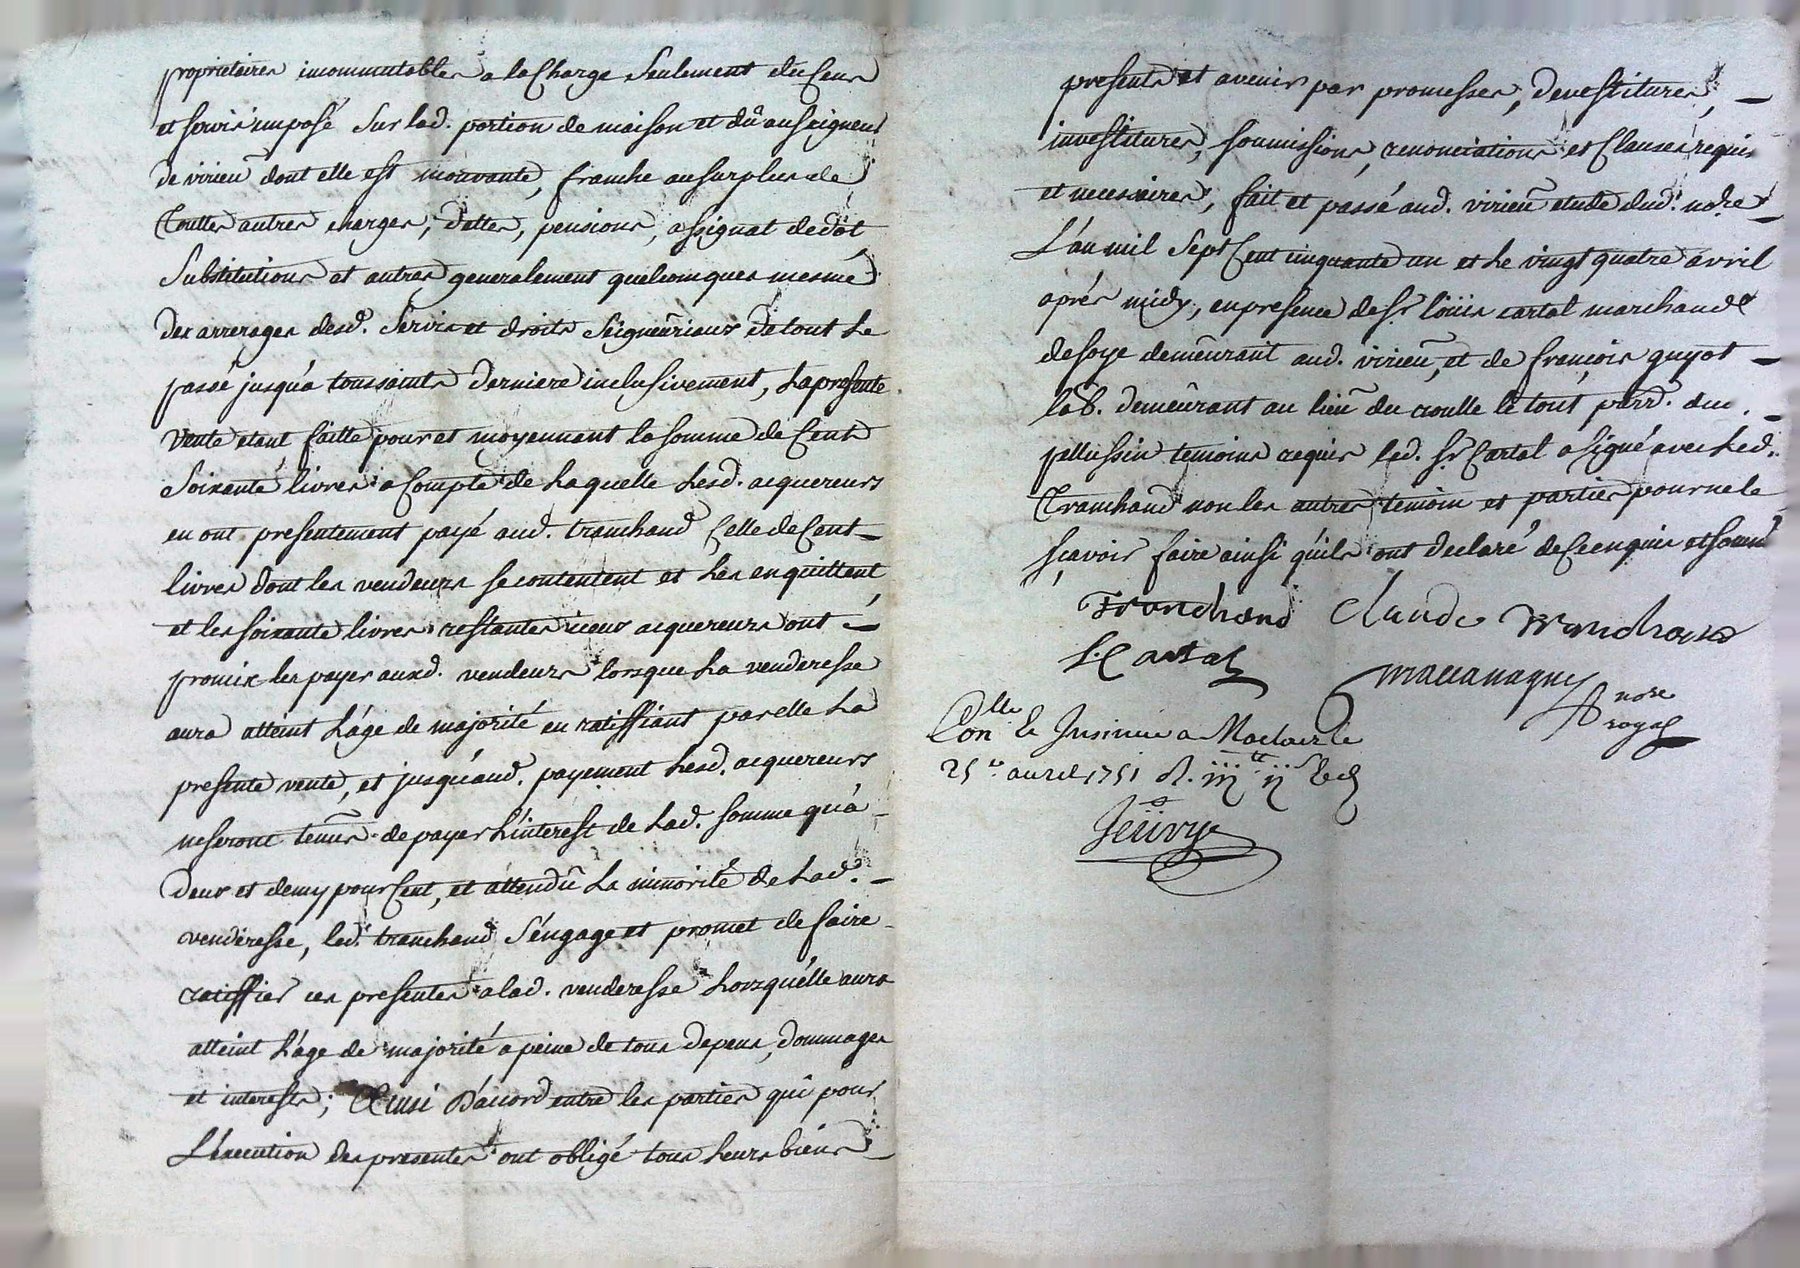 proprietaires incommutables a la Charge Seulement du Cens
et servis imposé Sur lad. portion de maison et dû au Seigneur
de virieu dont elle est mouvante, franche au surplus de
Touttes autres charges, dettes, pensions, assignat de dot
Substitutions et autres generalement quelconques mesme
des arrerages desd. Servis et droits Seigneuriaux de tout le
passé jusqu'a toussaints derniere inclusivement, la presente
vente etant faitte pour et moyennant la somme de Cent
Soixante livres a Compte de laquelle lesd. acquereurs
en ont presentement payé aud. tranchand Celle de Cent
livres dont les vendeurs se contentent et les en quittent,
et les soixante livres restantes iceux acquereurs ont
promis les payer auxd. vendeurs lorsque la venderesse
aura atteint l'âge de majorité en ratiffiant par elle la
presente vente, et jusqu'aud. payement lesd. acquereurs
ne seront tenus de payer l'interest de lad. somme qu'à
deux et demy pour Cent, et attendû la minorité de lad.
venderesse, led. tranchand S'engage et promet de faire
ratiffier ces presentes a lad. venderesse lorsqu'elle aura
atteint l'âge de majorité a peine de tous depens, dommages
et interests; Ainsi D'accord entre les parties qui pour
L'execution des presentes ont obligé tous leurs biens
presents et avenir par promesses, devestitures,
investitures, soumissions, renonciations et Clauses requis
et necessaires, fait et passé aud. virieu etude dud. nore
L'an mil Sept Cent cinquante un et le vingt quatre avril
après midy, en presence de Sr loüis cartal marchand
de soye demeurant aud. virieu, et de françois guyot
lab. demeurant au lieu du croulle le tout parr. du
pellussin temoins requis led. Sr Cartal a signé avec led.
Tranchand non les autres temoin et parties pour ne le
sçavoir faire ainsi qu'ils ont declaré de Ce enquis et somm
Tranchand Claude Tranchand
L. Cartal
nore
royal
Con lle & Insinué a Maclas le
25 e avril 1751